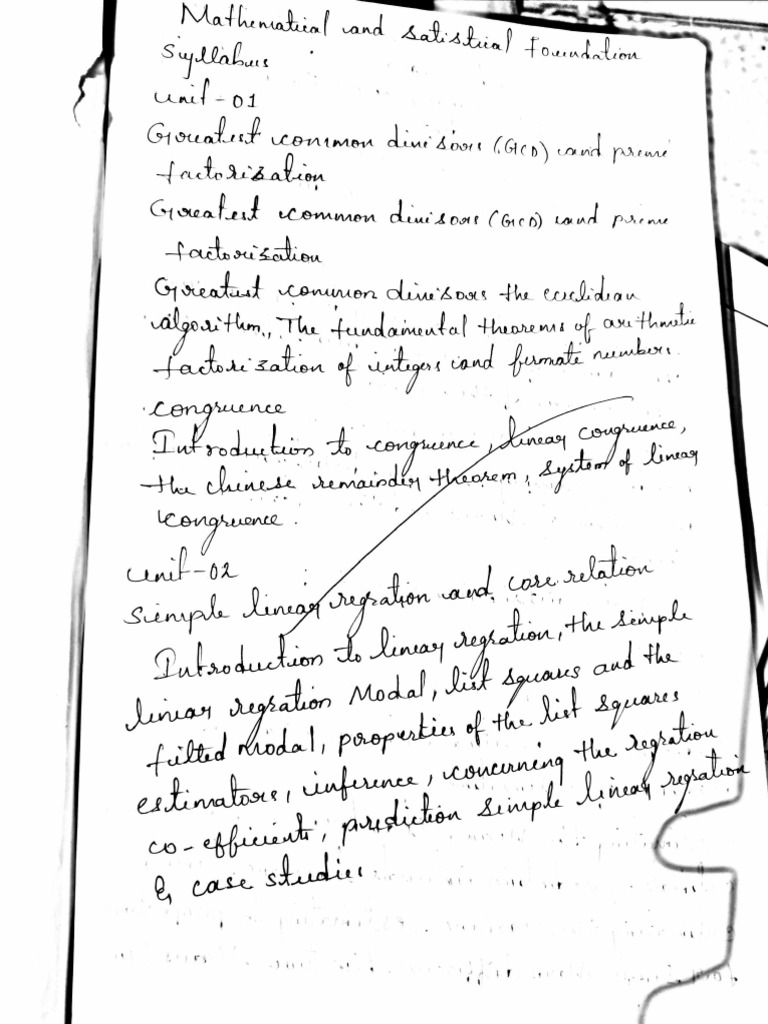 Mathematical and satistical Foundation
Syllabus
unit-01
Greatest common divisors (GCD) and prime
factorization
Greatest common divisors (GCD) and prime
factorization
Greatest common divisors the euclidean
algorithm, The fundamental theorems of arithmetic
factorization of integers and fermate numbers.
congruence
Introduction to congruence, linear congruence,
the chinese remainder theorem, system of linear
congruence.
unit-02
Simple linear regration and core relation
Introduction to linear regration, the simple
linear regration Modal, list squares and the
fitted modal, properties of the list squares
estimators, inference, concerning the regration
co-efficients, prediction simple linear regration
& case studies